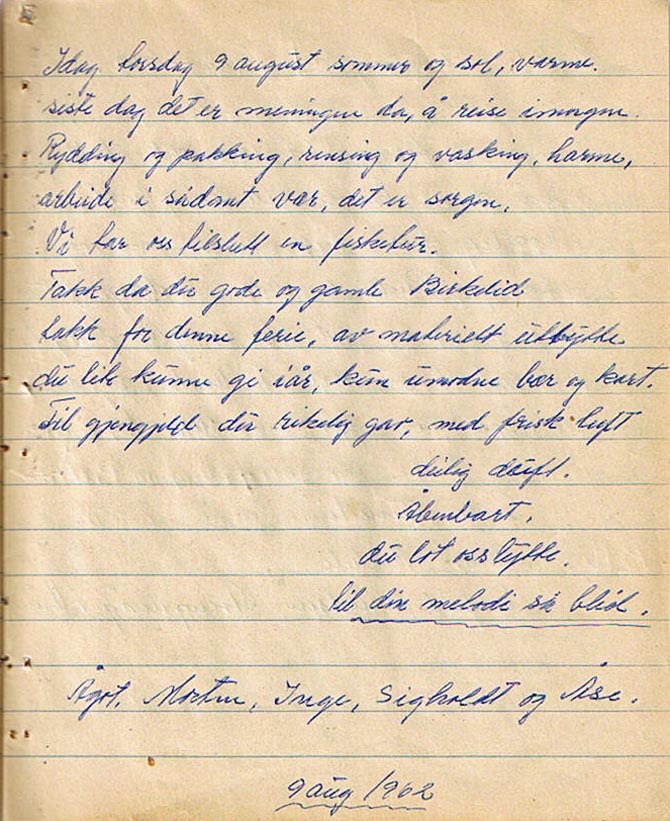 Idag torsdag 9 august sommer og sol, varme.
siste dag det er meningen da, å reise imorgen.
Rydding og pakking, rensing og vasking, harme,
arbeide i sådant vær, det er sorgen.
Vi tar oss tilslutt en fisketur.
Takk da du gode og gamle Birkelid
takk for denne ferie, av materielt utbytte
du lit kunne gi iår, kun umodne bær og kart.
Til gjengjeld du rikelig gav, med frisk luft
deilig duft.
Åbenbart.
du lot oss lytte.
til din melodi så blid.
Ågot, Morten, Inge, Sigholdt og Åse.
9 aug 1962